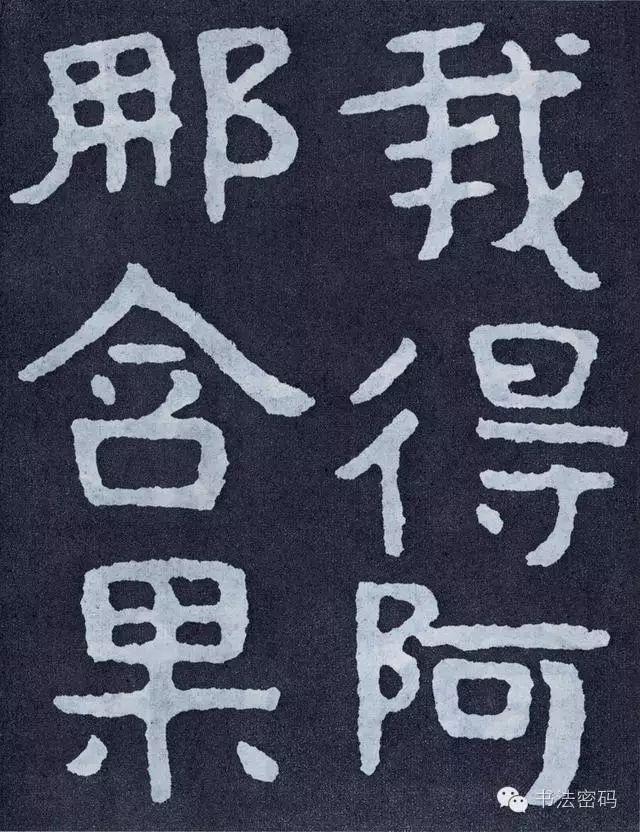 我得阿
那含果
书法密码